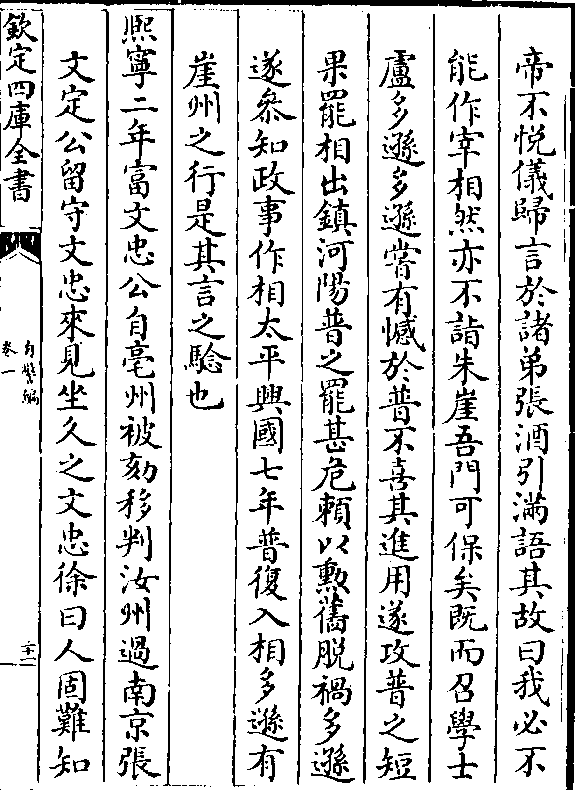 帝不悦儀歸言於諸弟張酒引滿語其故曰我必不
能作宰相然亦不詣朱崖吾門可保矣既而召學士
盧多遜多遜嘗有憾於普不喜其進用遂攻普之短
果罷相出鎮河陽普之罷甚危頼以勲舊脱禍多遜
遂叅知政事作相太平興國七年普復入相多遜有
崖州之行是其言之騐也
熈寧二年富文忠公自亳州被劾移判汝州過南京張
文定公留守文忠來見坐久之文忠徐曰人固難知
欽定四庫全書
自警編
卷一
二十一